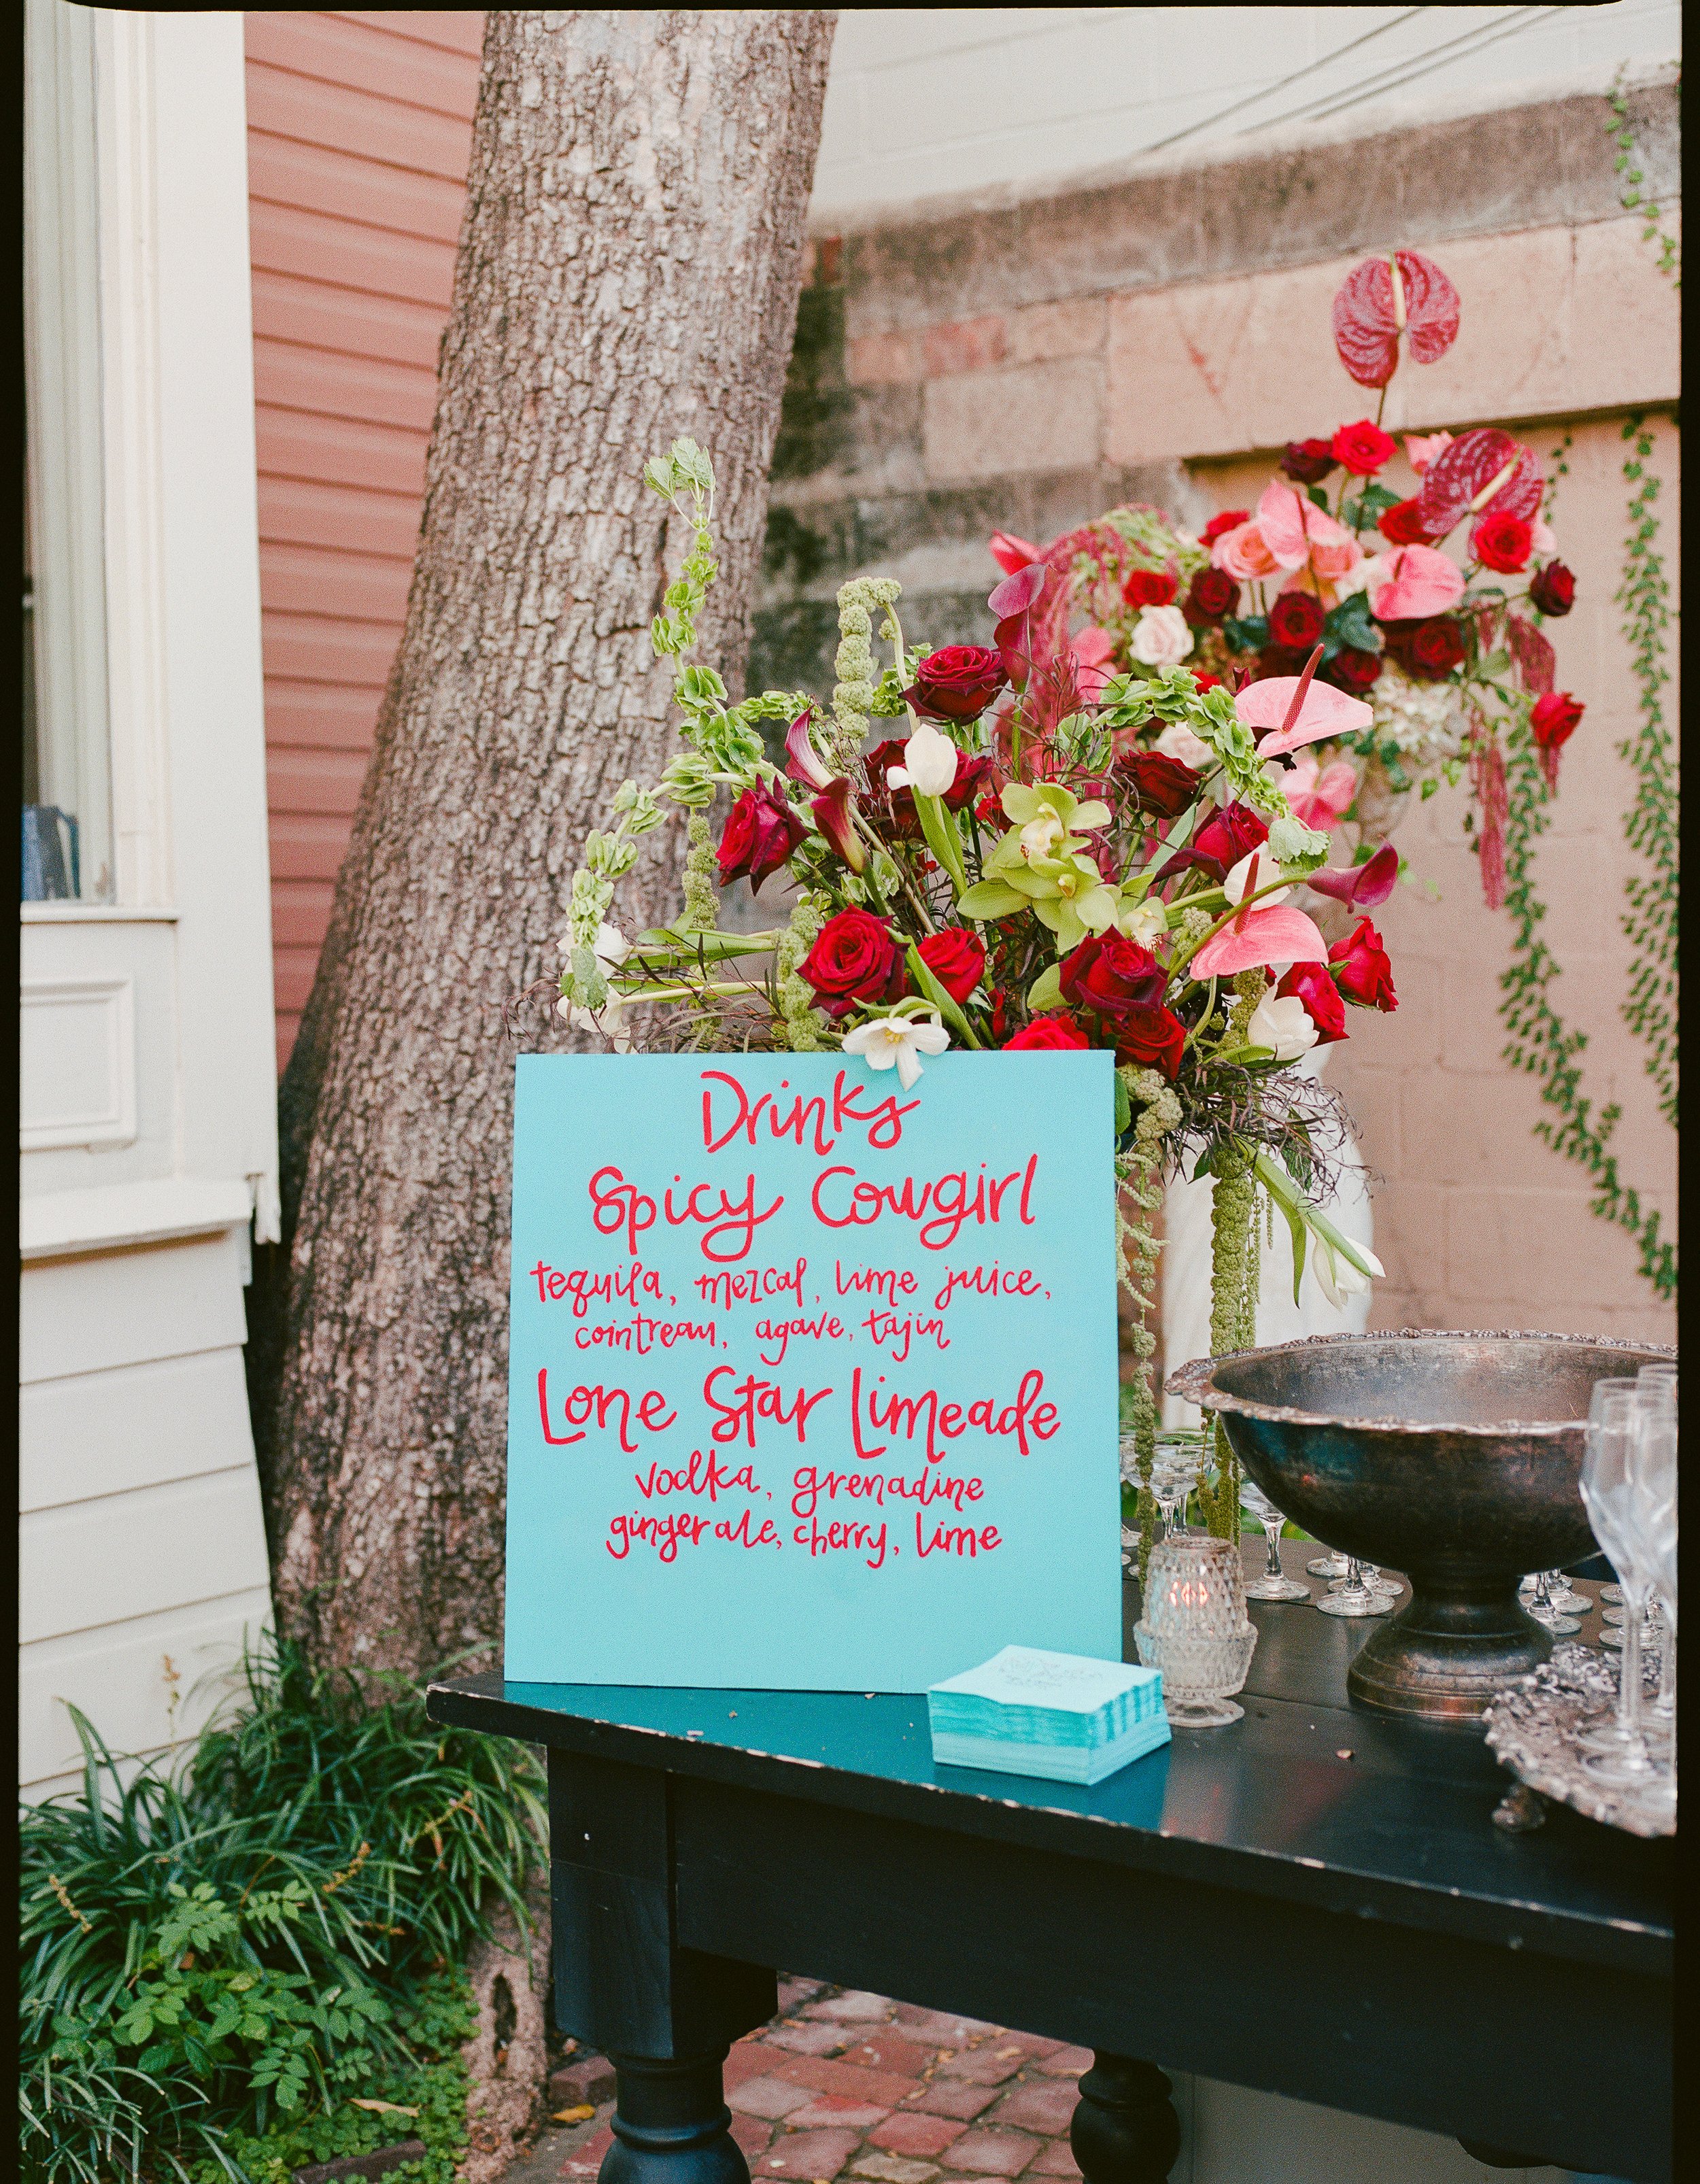 Drinks
Spicy Cowgirl
tequila, mezcal, lime juice,
cointreau, agave, tajin
Lone Star Limeade
vodka, grenadine
ginger ale, cherry, lime